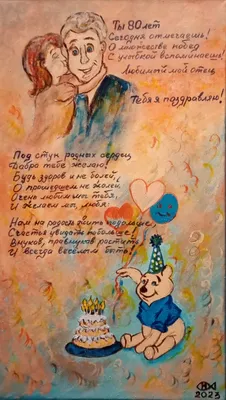 Ты 80 лет
Сегодня отмечаешь!
О множестве побед
С улыбкой вспоминаешь!
Любимый мой отец,
Тебя я поздравляю!
Под стук родных сердец
Добра тебе желаю!
Будь здоров и не болей,
О прошедшем не жалей.
Очень любим мы тебя,
И желаем мы, любя:
Нам на радость жить подольше,
Счастья увидеть побольше,
Внуков, правнуков растить
И всегда весёлым быть!
2023